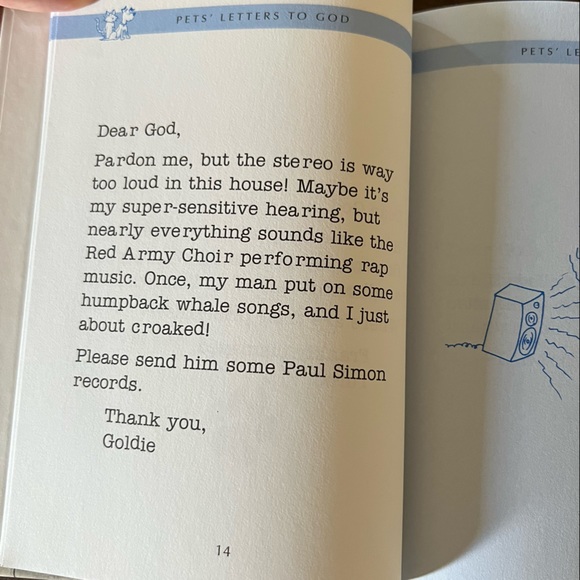 PETS' LETTERS TO GOD
Dear God,
Pardon me, but the stereo is way
too loud in this house! Maybe it's
my super-sensitive hearing, but
nearly everything sounds like the
Red Army Choir performing rap
music. Once, my man put on some
humpback whale songs, and I just
about croaked!
Please send him some Paul Simon
records.
Thank you,
Goldie
14
PETS' LE